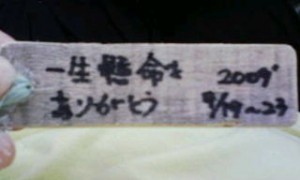 一生懸命を 2009'
ありがとう 9/19~23